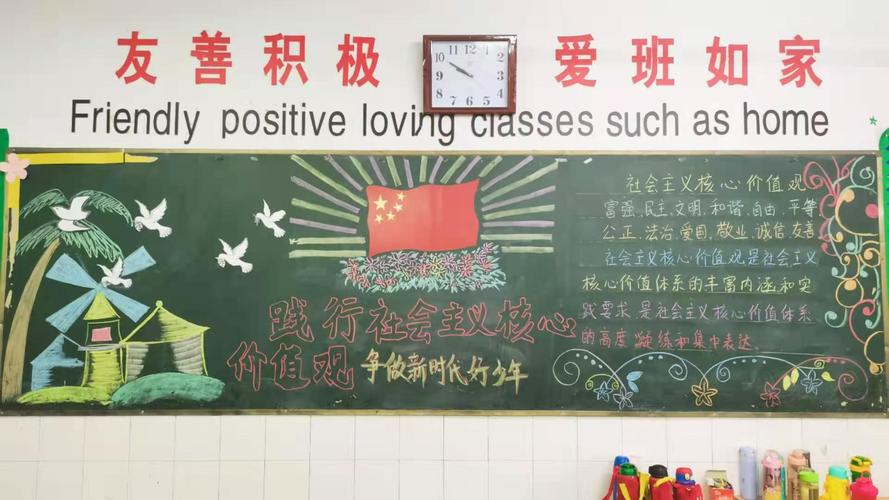 友善积极 爱班如家
Friendly positive loving classes such as home
践行社会主义核心
价值观 争做新时代好少年
社会主义核心价值观
富强,民主,文明,和谐,自由,平等
公正,法治,爱国,敬业,诚信,友善
社会主义核心价值观是社会主义
核心价值体系的丰富内涵和实
践要求,是社会主义核心价值体系
的高度凝练和集中表达。